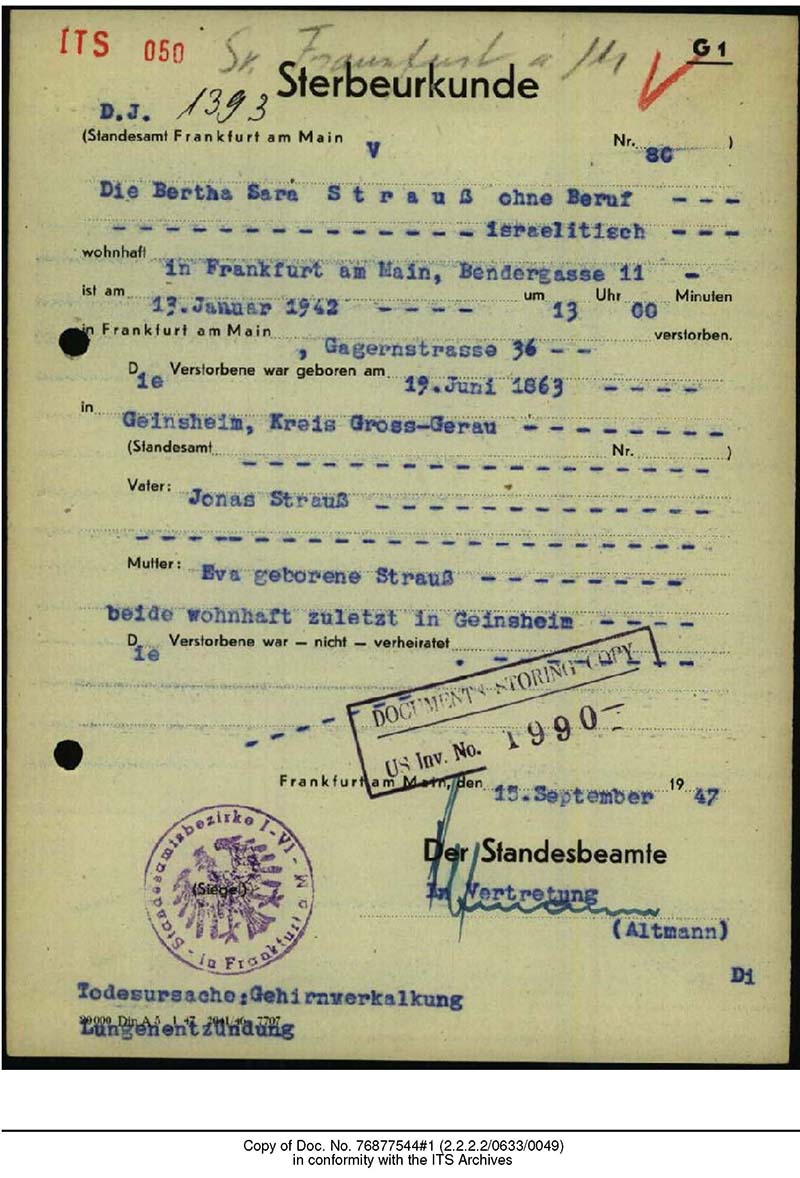 ITS 050 Sv. Frankfurt a/M G 1
Sterbeurkunde
D.J. 1393
(Standesamt Frankfurt am Main V Nr. 80 )
Die Bertha Sara S t r a u ß ohne Beruf - - -
- - - - - - - - - - - - - - israelitisch - - -
wohnhaft in Frankfurt am Main, Bendergasse 11 -
ist am 13. Januar 1942 - - - - um 13 Uhr 00 Minuten
in Frankfurt am Main , Gagernstrasse 36 - - verstorben.
Die Verstorbene war geboren am 19. Juni 1863 - - - -
in Geinsheim, Kreis Gross-Gerau - - - - - - - -
(Standesamt - - - - - - - - - - - - - Nr. - - - )
Vater: Jonas Strauß - - - - - - - - - - - - -
- - - - - - - - - - - - - - - - - - - - -
Mutter: Eva geborene Strauß - - - - - - - -
beide wohnhaft zuletzt in Geinsheim - - - -
Die Verstorbene war – nicht – verheiratet . - - - - - - - -
DOCUMENTS STORING COPY
US Inv. No. 1990
Frankfurt am Main, den 15. September 1947
Der Standesbeamte
In Vertretung
(Altmann)
Standesamtsbezirke I-VI - in Frankfurt a M -
(Siegel)
Di
Todesursache: Gehirnverkalkung
Din A 5 1. 47 7707
Lungenentzündung
Copy of Doc. No. 76877544#1 (2.2.2.2/0633/0049)
in conformity with the ITS Archives